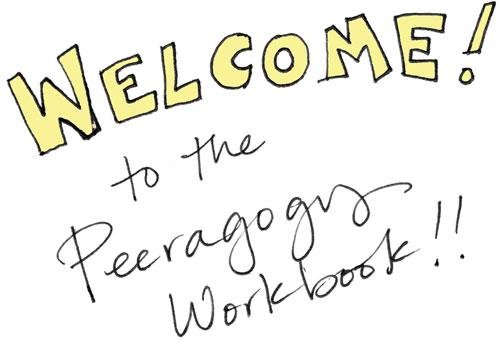 WELCOME!
to the
Peeragogy
Workbook!!